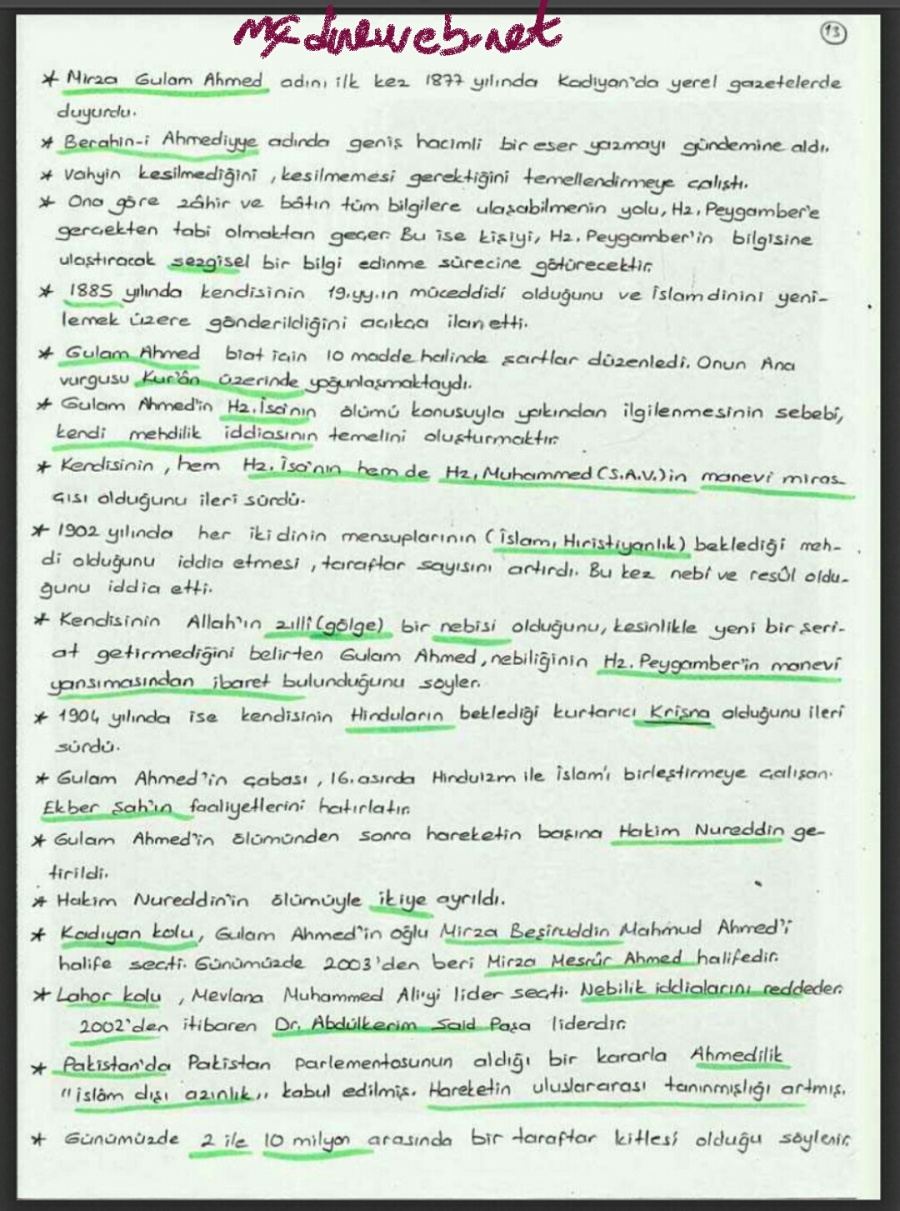 mxdineweb.net
13
* Mirza Gulam Ahmed adını ilk kez 1877 yılında Kadiyan'da yerel gazetelerde
duyurdu.
* Berahin-i Ahmediyye adında geniş hacimli bir eser yazmayı gündemine aldı.
* Vahyin kesilmediğini, kesilmemesi gerektiğini temellendirmeye çalıştı.
* Ona göre zâhir ve bâtın tüm bilgilere ulaşabilmenin yolu, Hz. Peygamber'e
gerçekten tabi olmaktan geçer. Bu ise kişiyi, Hz. Peygamber'in bilgisine
ulaştıracak sezgisel bir bilgi edinme sürecine götürecektir.
* 1885 yılında kendisinin 19.yy.ın müceddidi olduğunu ve İslam dinini yeni-
lemek üzere gönderildiğini açıkça ilan etti.
* Gulam Ahmed biat için 10 madde halinde şartlar düzenledi. Onun Ana
vurgusu Kur'ân üzerinde yoğunlaşmaktaydı.
* Gulam Ahmed'in Hz. İsa'nın ölümü konusuyla yakından ilgilenmesinin sebebi,
kendi mehdilik iddiasının temelini oluşturmaktır.
* Kendisinin, hem Hz. İsa'nın hem de Hz. Muhammed (S.A.V.)'in manevi miras
çısı olduğunu ileri sürdü.
* 1902 yılında her iki dinin mensuplarının (İslam, Hıristiyanlık) beklediği meh-
di olduğunu iddia etmesi, taraftar sayısını artırdı. Bu kez nebî ve resûl oldu-
ğunu iddia etti.
* Kendisinin Allah'ın zıllî (gölge) bir nebisi olduğunu, kesinlikle yeni bir şeri-
at getirmediğini belirten Gulam Ahmed, nebiliğinin Hz. Peygamber'in manevî
yansımasından ibaret bulunduğunu söyler.
* 1904 yılında ise kendisinin Hinduların beklediği kurtarıcı Krişna olduğunu ileri
sürdü.
* Gulam Ahmed'in çabası, 16. asırda Hinduizm ile İslam'ı birleştirmeye çalışan
Ekber Şah'ın faaliyetlerini hatırlatır.
* Gulam Ahmed'in ölümünden sonra hareketin başına Hakim Nureddin ge-
tirildi.
* Hakim Nureddin'in ölümüyle ikiye ayrıldı.
* Kadıyan kolu, Gulam Ahmed'in oğlu Mirza Beşiruddin Mahmud Ahmed'i
halife seçti. Günümüzde 2003'den beri Mirza Mesrûr Ahmed halifedir.
* Lahor kolu, Mevlana Muhammed Ali'yi lider seçti. Nebilik iddialarını reddeder.
2002'den itibaren Dr. Abdülkerim Said Paşa liderdir.
* Pakistan'da Pakistan Parlementosunun aldığı bir kararla Ahmedilik
"islâm dışı azınlık" kabul edilmiş. Hareketin uluslararası tanınmışlığı artmış.
* Günümüzde 2 ile 10 milyon arasında bir taraftar kitlesi olduğu söylenir.